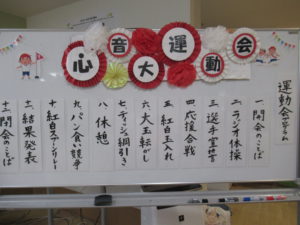 心音大運動会
運動会プログラム
一、開会のことば
二、ラジオ体操
三、選手宣誓
四、応援合戦
五、紅白玉入れ
六、大玉転がし
七、ティッシュ綱引き
八、休憩
九、パン食い競争
十、紅白スプーンリレー
十一、結果発表
十二、閉会のことば